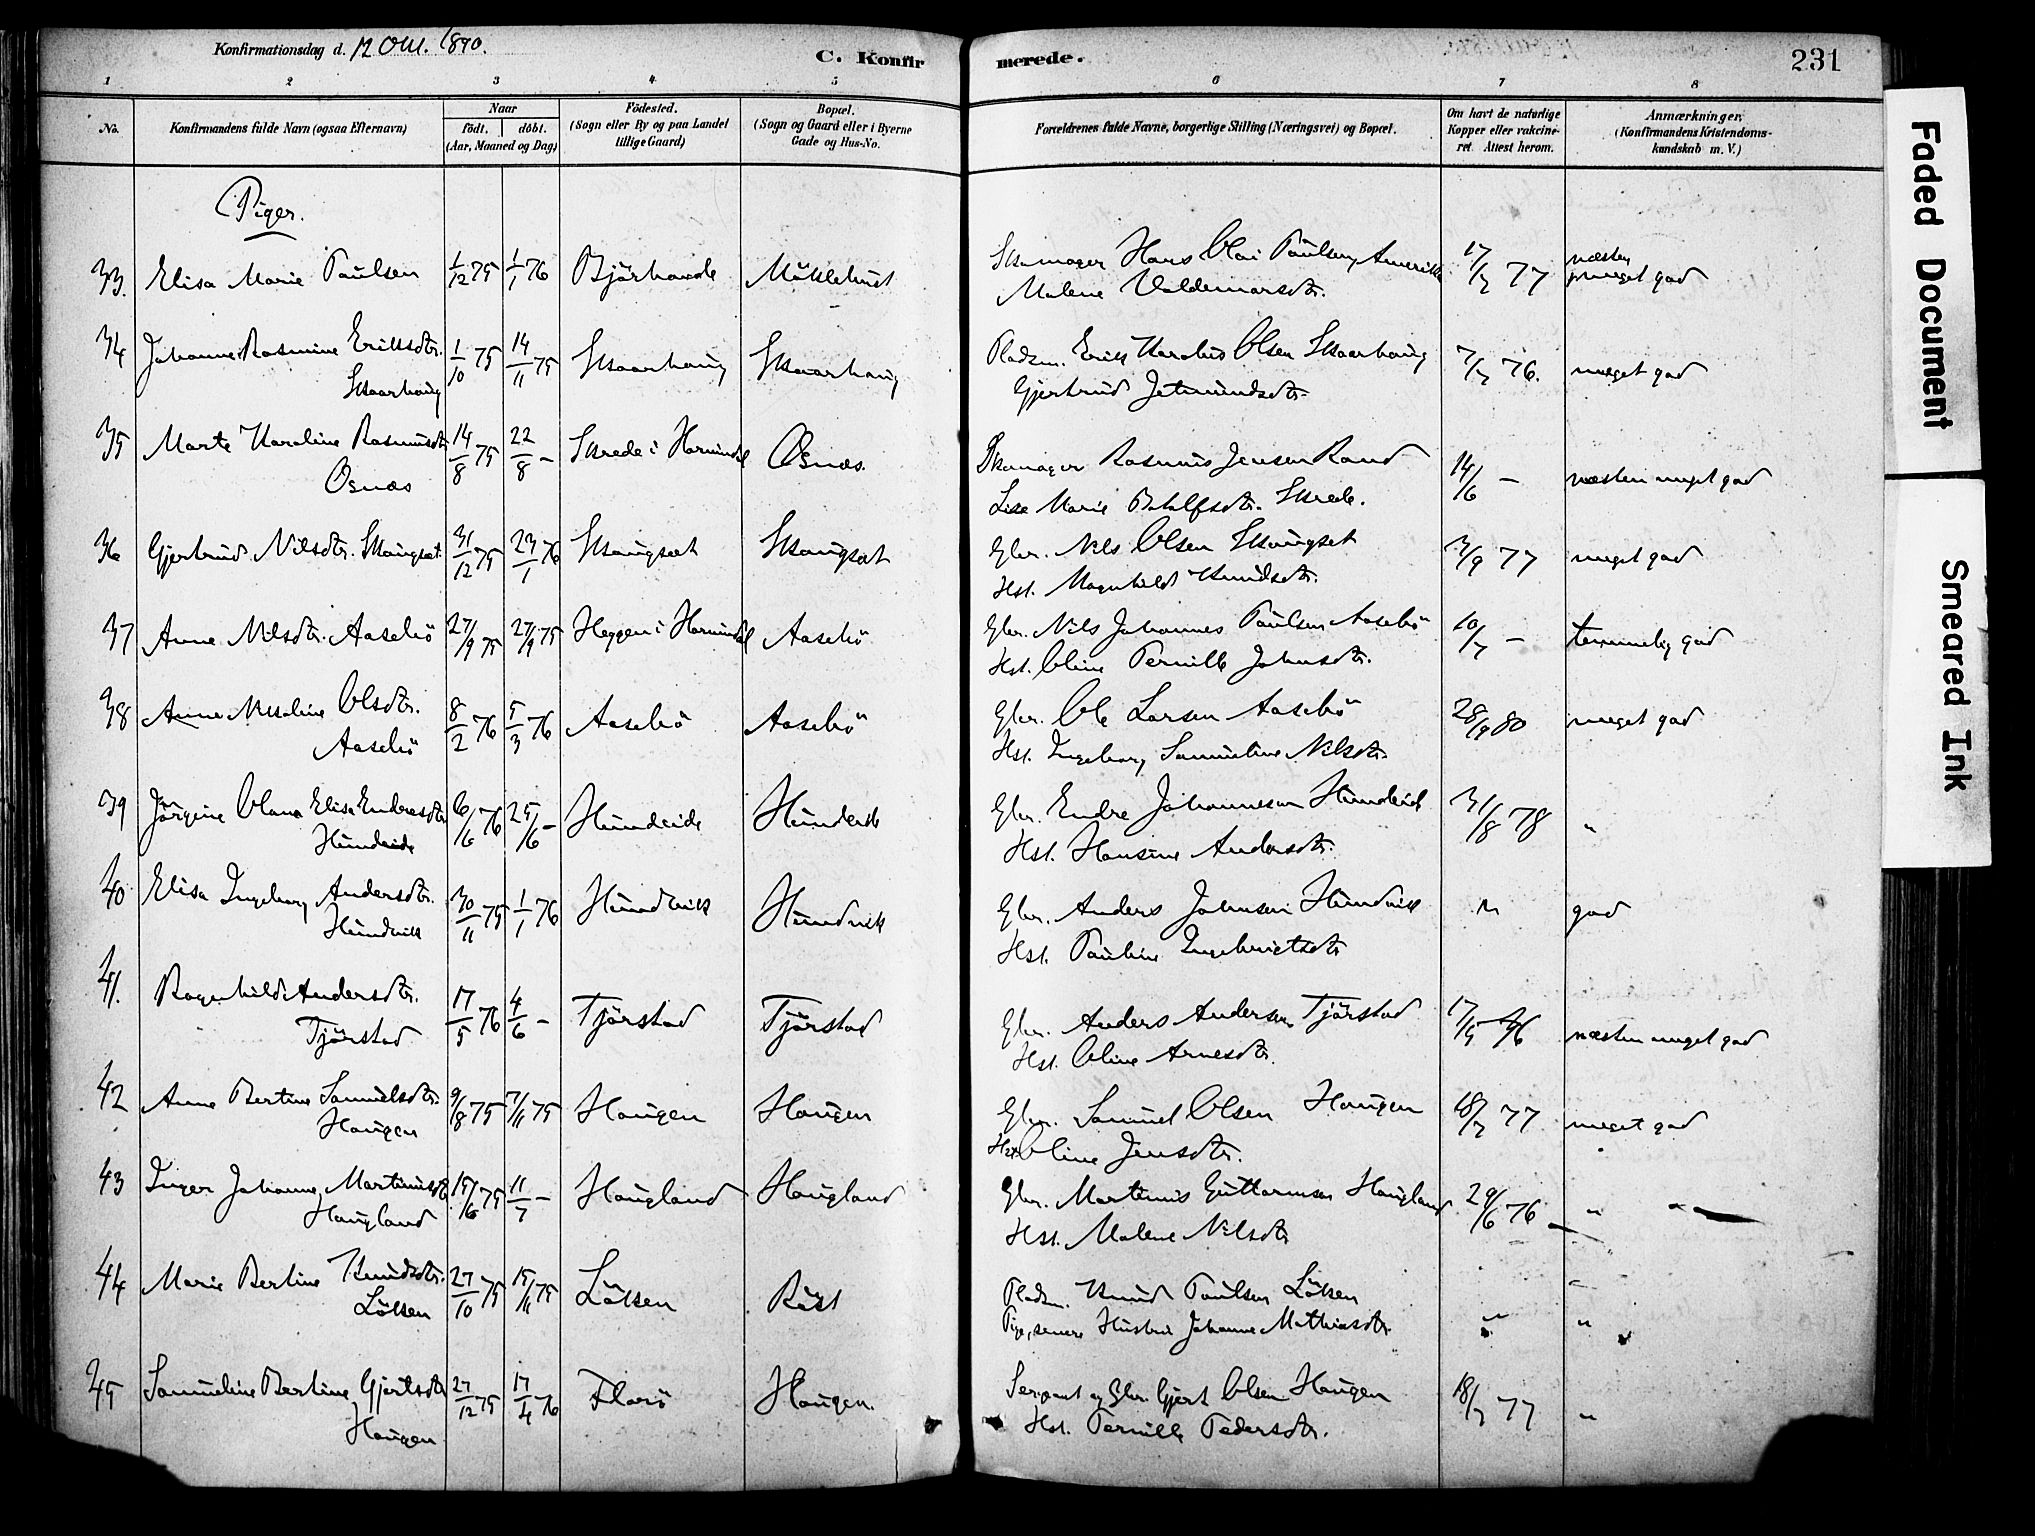 Konfirmationsdag d. 12 Okt. 1890.
C. Konfirmerede.
231
1 2 3 4 5 6 7 8
No.
Konfirmandens fulde Navn (ogsaa Efternavn)
Naar
födt. döbt.
(Aar, Maaned og Dag)
Födested.
(Sogn eller By og paa Landet
tillige Gaard)
Bopæl.
(Sogn og Gaard eller i Byerne
Gade og Hus-No.
Forældrenes fulde Navne, borgerlige Stilling (Næringsvei) og Bopæl.
Om havt de naturlige
Kopper eller vakcineret
Attest herom.
Anmærkninger.
(Konfirmandens Kristendomskundskab
m. V.)
Piger.
33. Elisa Marie Paulsen 1/12 75 1/1 76 Myklebust Hans Olai Paulsen, Amerika 77 næsten meget god
Malene Valdemarsdtr.
34 Johanne Rasmine Eriksdtr. 1/10 75 14/11 75 Skaarhaug Skaarhaug Pladsm. Erik Karolus Olsen Skaarhaug 7/7 76. meget god
Skaarhaug Gjertrud Jetmundsdtr.
35 Marte Karoline Rasmusdtr. 14/8 75 22/8 - Skrede i Hornindal Osnæs. Skomager Rasmus Jensen Rand 14/6 - næsten meget god
Osnæs Lise Marie Skrede.
36 Gjertrud Nilsdtr. Skaugset 31/12 75 23/1 76 Skaugset Skaugset Gbr. Nils Olsen Skaugset 3/9 77 meget god
Hst. Magnhild Knudsdtr.
37 Anne Nilsdtr. Aasebö 27/9 75 27/9 75 Heggen i Hornindal Aasebö Gbr. Nils Johannes Paulsen Aasebö 10/7 - temmelig god
Hst. Oline Pernille Johnsdtr.
38 Anne Nikoline Olsdtr. 8/2 76 5/3 76 Aasebö Aasebö Gbr. Ole Larsen Aasebö 28/9 80 meget god
Aasebö Hst. Ingeborg Samueline Nilsdtr.
39 Jörgine Olana Elisa Endresdtr. 6/6 76 25/6 - Hundeide Hundeide Gbr. Endre Johannesen Hundeid 31/8 78 "
Hundeide Hst. Hansine Andersdtr.
40 Elisa Ingeborg Andersdtr. 30/11 75 1/1 76 Hundvik Hundvik Gbr. Anders Johnsen Hundvik " god
Hundvik Hst. Pauline Ingebrigtsdtr.
41. Ragnhild Andersdtr. 17/5 76 4/6 - Tjörstad Tjörstad Gbr. Anders Andersen Tjörstad næsten meget god
Tjörstad Hst. Oline Arnesdtr.
42 Anne Bertine Samuelsdtr. 9/8 75 7/11 75 Haugen Haugen Gbr. Samuel Olsen Haugen 18/7 77 meget god
Haugen Hst. Oline Jensdtr.
43 Inger Johanne Martinusdtr. 15/6 75 11/7 - Haugland Haugland Gbr. Martinus Guttormsen Haugland 29/6 76 " "
Haugland Hst. Malene Nilsdtr.
44 Marie Bertine Knudsdtr. 27/10 75 Löken Pladsm. Knud Paulsen Löken " "
Löken Pige, senere Hustru Johanne Mathiasdtr.
45 Samueline Bertine Gjertsdtr. 27/12 75 17/4 76 Florö Haugen. Sergeant og Gbr. Gjert Olsen Haugen 18/7 77 "
Haugen Hst. Pernille Pedersdtr.
Faded Document
Smeared Ink